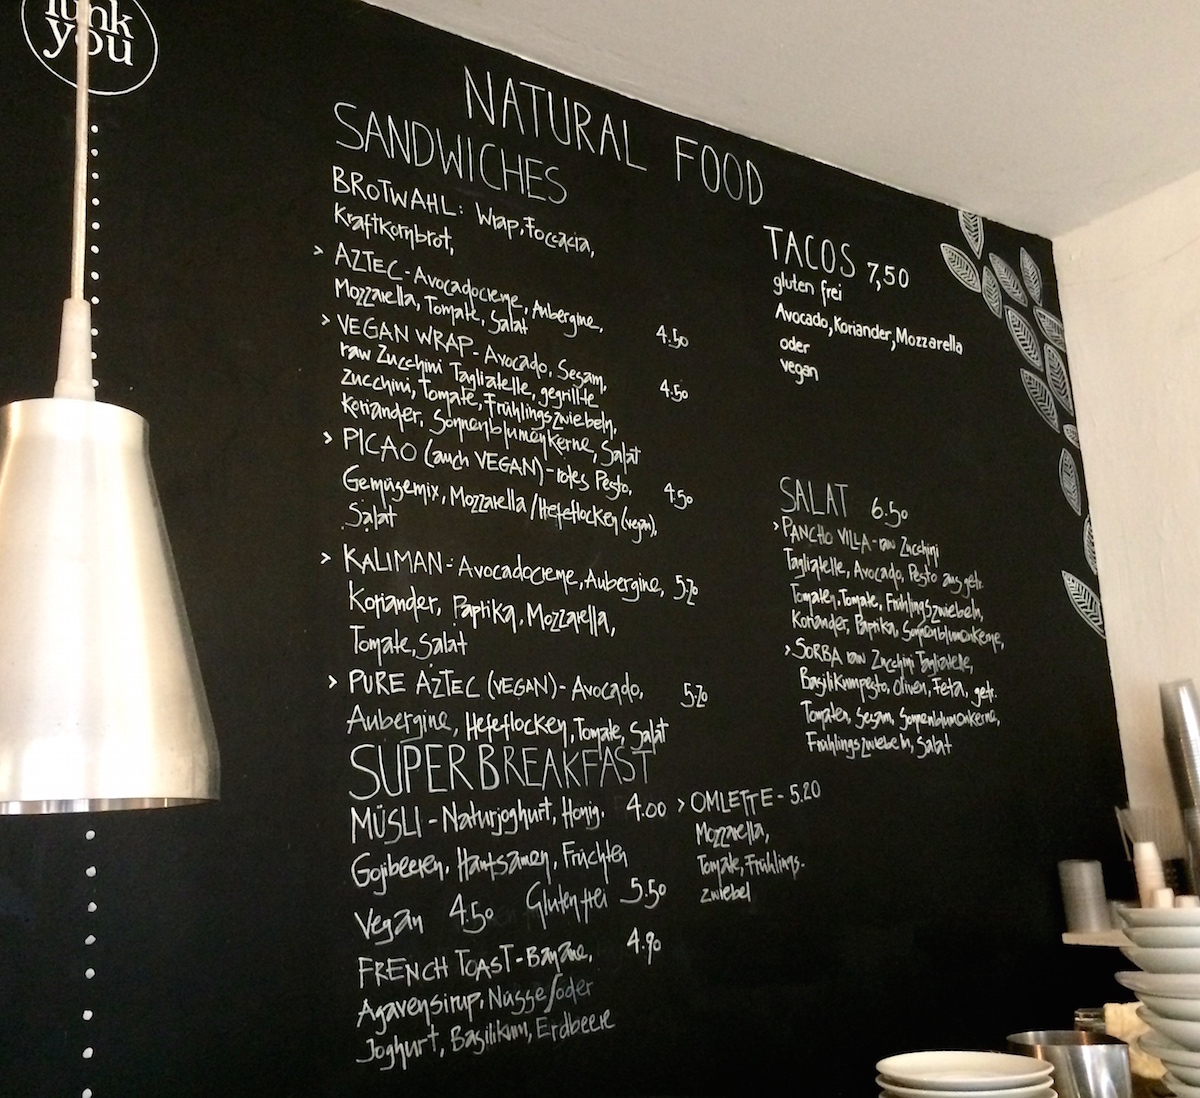 funk
you
NATURAL FOOD
SANDWICHES
BROTWAHL: Wrap, Foccacia,
Kraftkornbrot,
> AZTEC - Avocadocreme, Aubergine,
Mozzarella, Tomate, Salat 4.50
> VEGAN WRAP - Avocado, Sesam,
raw Zucchini Tagliatelle, gegrillte 4.50
Zucchini, Tomate, Frühlingszwiebeln,
Koriander, Sonnenblumenkerne, Salat
> PICAO (auch VEGAN) - rotes Pesto,
Gemüsemix, Mozzarella / Hefeflocken (vegan), 4.50
Salat
> KALIMAN - Avocadocreme, Aubergine, 5.20
Koriander, Paprika, Mozzarella,
Tomate, Salat
> PURE AZTEC (VEGAN) - Avocado, 5.20
Aubergine, Hefeflocken, Tomate, Salat
SUPERBREAKFAST
MÜSLI - Naturjoghurt, Honig, 4.00
Gojibeeren, Hanfsamen, Früchten
Vegan 4.50 Glutenfrei 5.50
FRENCH TOAST - Banane, 4.90
Agavensirup, Nüsse / oder
Joghurt, Basilikum, Erdbeere
> OMLETTE - 5.20
Mozzarella,
Tomate, Frühlings-
zwiebel
TACOS 7,50
gluten frei
Avocado, Koriander, Mozzarella
oder
vegan
SALAT 6.50
> PANCHO VILLA - raw Zucchini
Tagliatelle, Avocado, Pesto aus getr.
Tomaten, Tomate, Frühlingszwiebeln,
Koriander, Paprika, Sonnenblumenkerne,
> SORBA raw Zucchini Tagliatelle,
Basilikumpesto, Oliven, Feta, getr.
Tomaten, Sesam, Sonnenblumenkerne,
Frühlingszwiebeln, Salat